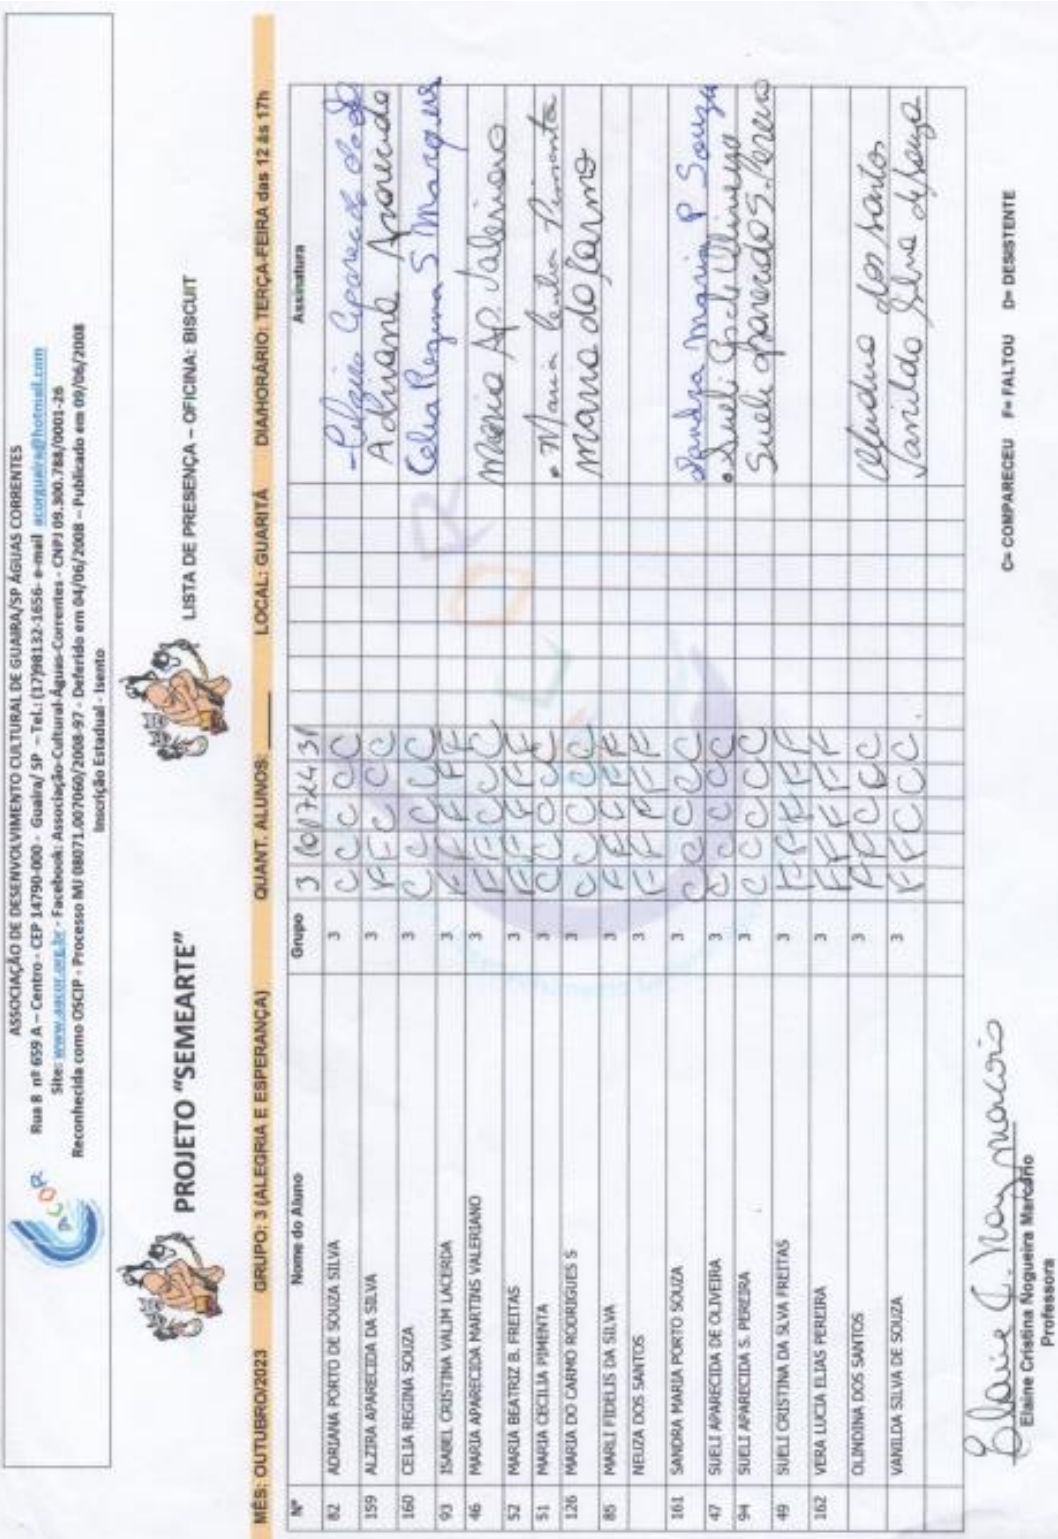 ASSOCIAÇÃO DE DESENVOLVIMENTO CULTURAL DE GUAIRA/SP ÁGUAS CORRENTES
Rua 8 nº 659 A – Centro - CEP 14790-000 - Guaira/ SP – Tel.: (17)98132-1656- e-mail acorguaira@hotmail.com
Site: www.aacor.org.br - Facebook: Associação-Cultural-Águas-Correntes - CNPJ 09.300.788/0001-26
Reconhecida como OSCIP - Processo MJ 08071.007060/2008-97 - Deferido em 04/06/2008 – Publicado em 09/06/2008
Inscrição Estadual - Isento
PROJETO "SEMEARTE" LISTA DE PRESENÇA – OFICINA: BISCUIT
MÊS: OUTUBRO/2023 GRUPO: 3 (ALEGRIA E ESPERANÇA) QUANT. ALUNOS: ____ LOCAL: GUARITÁ DIA/HORÁRIO: TERÇA-FEIRA das 12 ás 17h
Nº Nome do Aluno Grupo 3 10 17 24 31 Assinatura
82 ADRIANA PORTO DE SOUZA SILVA 3 C C C C C
159 ALZIRA APARECIDA DA SILVA 3 F F C C C Adriana Aparecida
160 CELIA REGINA SOUZA 3 C C C C C Celia Regina S Marques
93 ISABEL CRISTINA VALIM LACERDA 3 F F F F F
46 MARIA APARECIDA MARTINS VALERIANO 3 F F F C C Maria AP. Valeriano
52 MARIA BEATRIZ B. FREITAS 3 F F F F F
51 MARIA CECILIA PIMENTA 3 C C C C C Maria Cecilia Pimenta
126 MARIA DO CARMO RODRIGUES S 3 C C C C C Maria do Carmo
85 MARLI FIDELIS DA SILVA 3 F F F F F
NEUZA DOS SANTOS 3 F F F F F
161 SANDRA MARIA PORTO SOUZA 3 C C C C C Sandra Maria P Souza
47 SUELI APARECIDA DE OLIVEIRA 3 C C C C C Sueli Ap. de Oliveira
94 SUELI APARECIDA S. PEREIRA 3 C C C C C Sueli Aparecida S. Pereira
49 SUELI CRISTINA DA SLVA FREITAS 3 F F F F F
162 VERA LUCIA ELIAS PEREIRA 3 F F F F F
OLINDINA DOS SANTOS 3 F F C C C dos santos
VANILDA SILVA DE SOUZA 3 F F C C C Vanilda Silva de Souza
C= COMPARECEU F= FALTOU D= DESISTENTE
Elaine C. Nog Macario
Elaine Cristina Nogueira Marcário
Professora